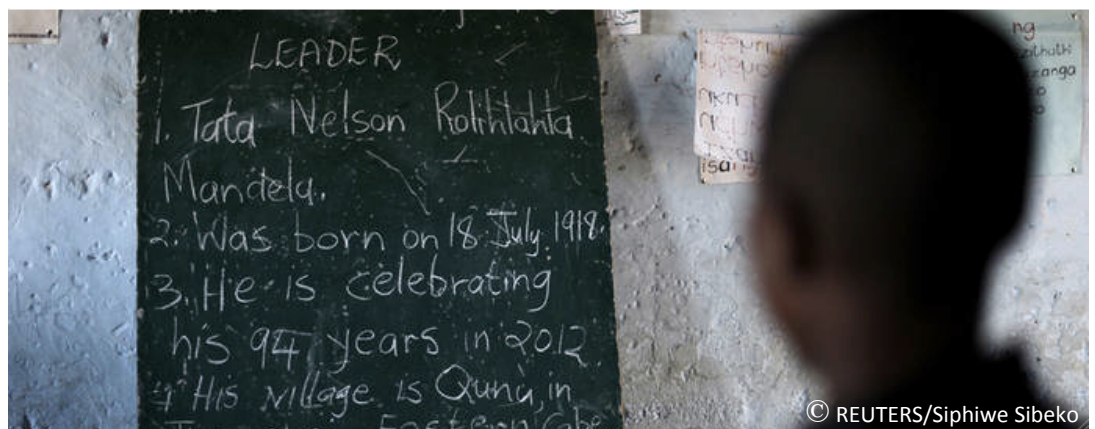 LEADER
1. Tata Nelson Rolihlahla
Mandela.
2. Was born on 18 July. 1918.
3. He is celebrating
his 94 years in 2012.
4 His village is Qunu, in
Eastern Cape
ng
zithathi
zanga
o
o
isa
© REUTERS/Siphiwe Sibeko